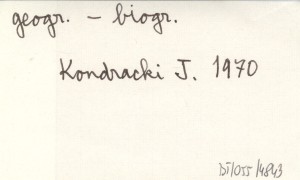 geogr. – biogr.
Kondracki J. 1970
DI/055/4843